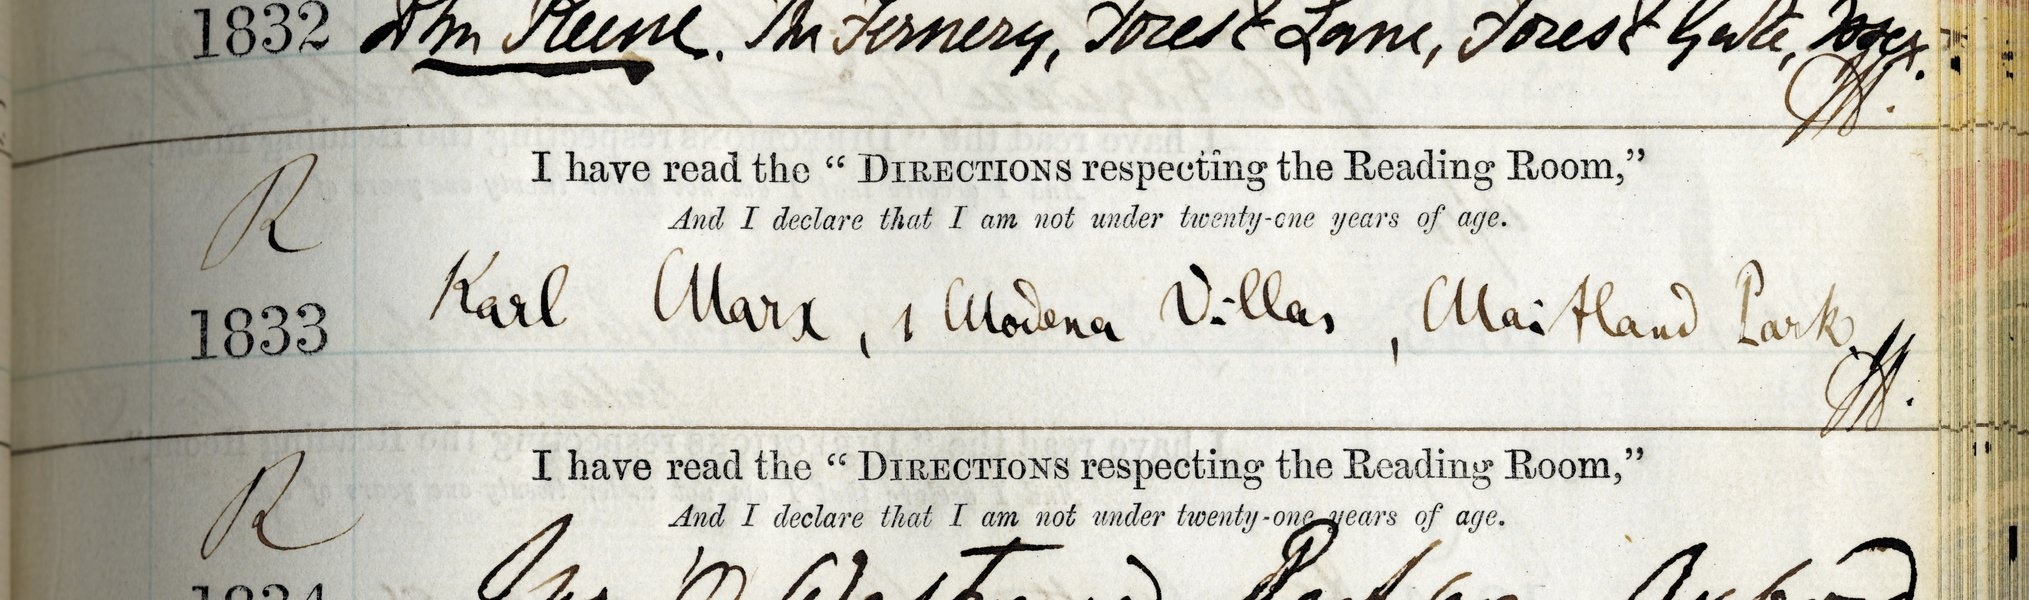 1832 Keene. The Fernery, Forest Lane, Forest Gate, Essex.
I have read the “ DIRECTIONS respecting the Reading Room,”
R
And I declare that I am not under twenty-one years of age.
1833 Karl Marx, 1 Modena Villas, Maitland Park.
I have read the “ DIRECTIONS respecting the Reading Room,”
R
And I declare that I am not under twenty-one years of age.
1834